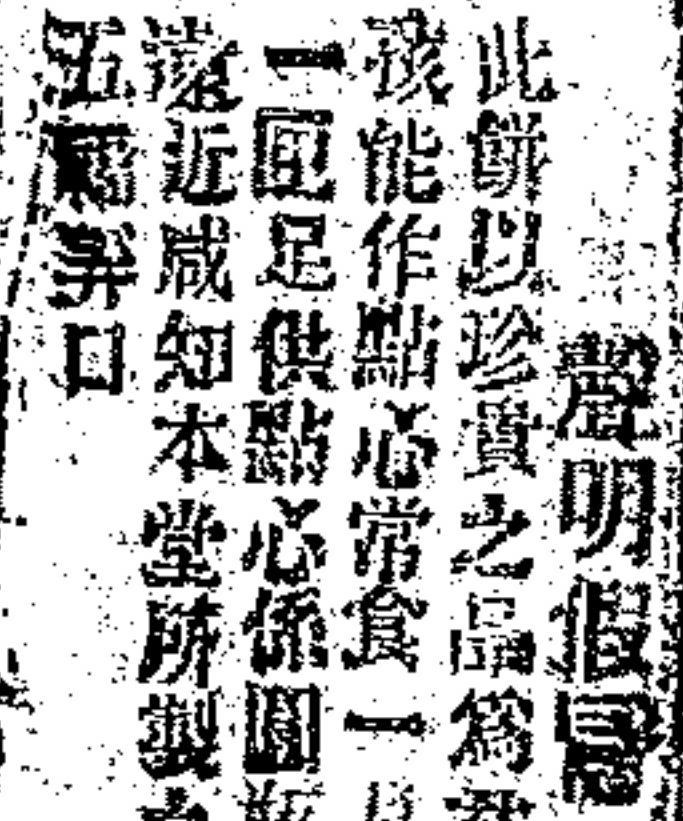 聲明假冒
此餅以珍貴之品為
孩能作點心常食一
一匣足供點心係
遠近咸知本堂所製
五弄口